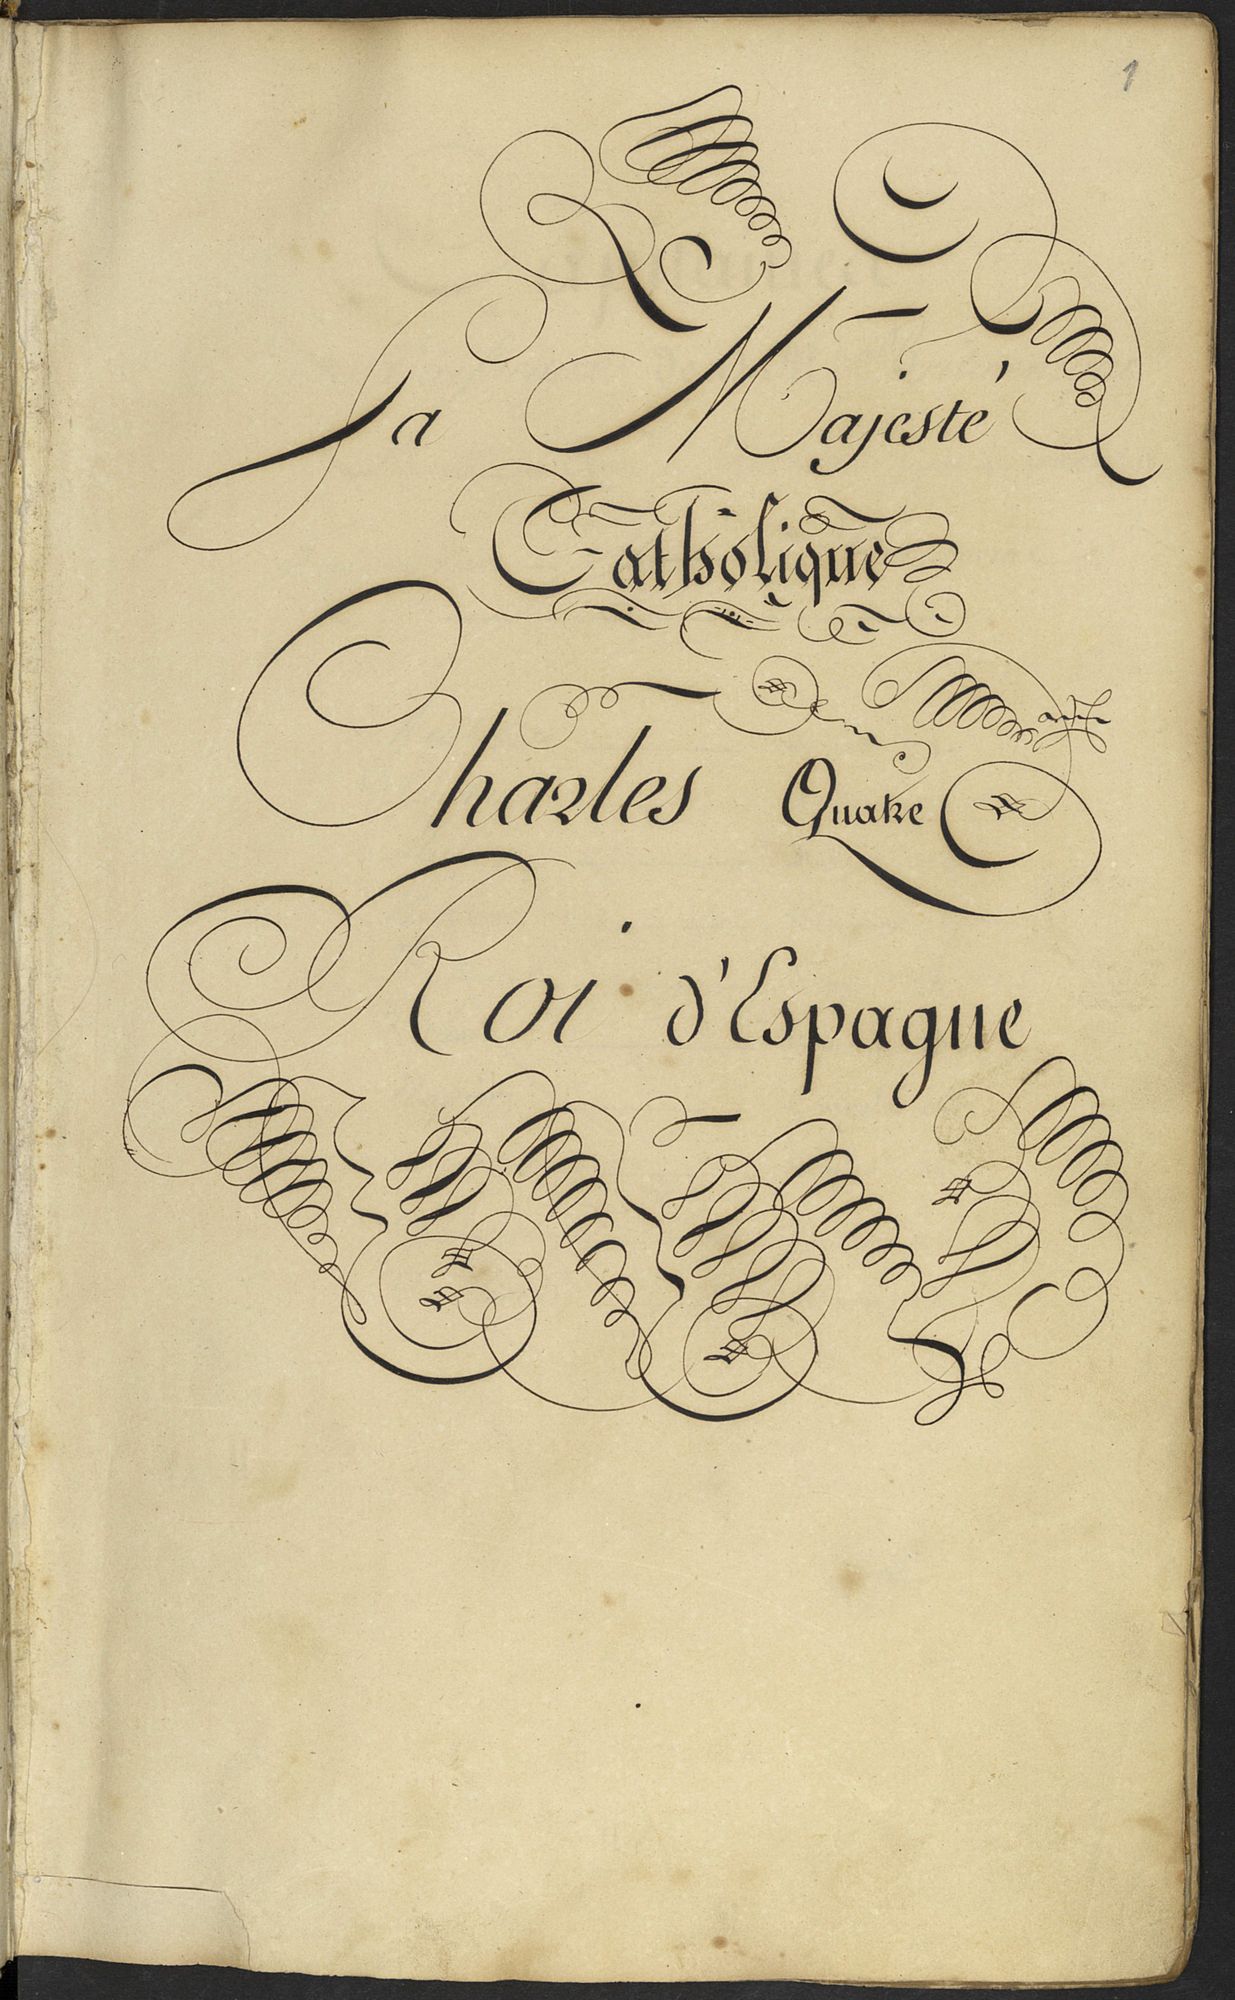 1
Sa Majesté
Catholique
Charles Quatre
Roi d'Espagne